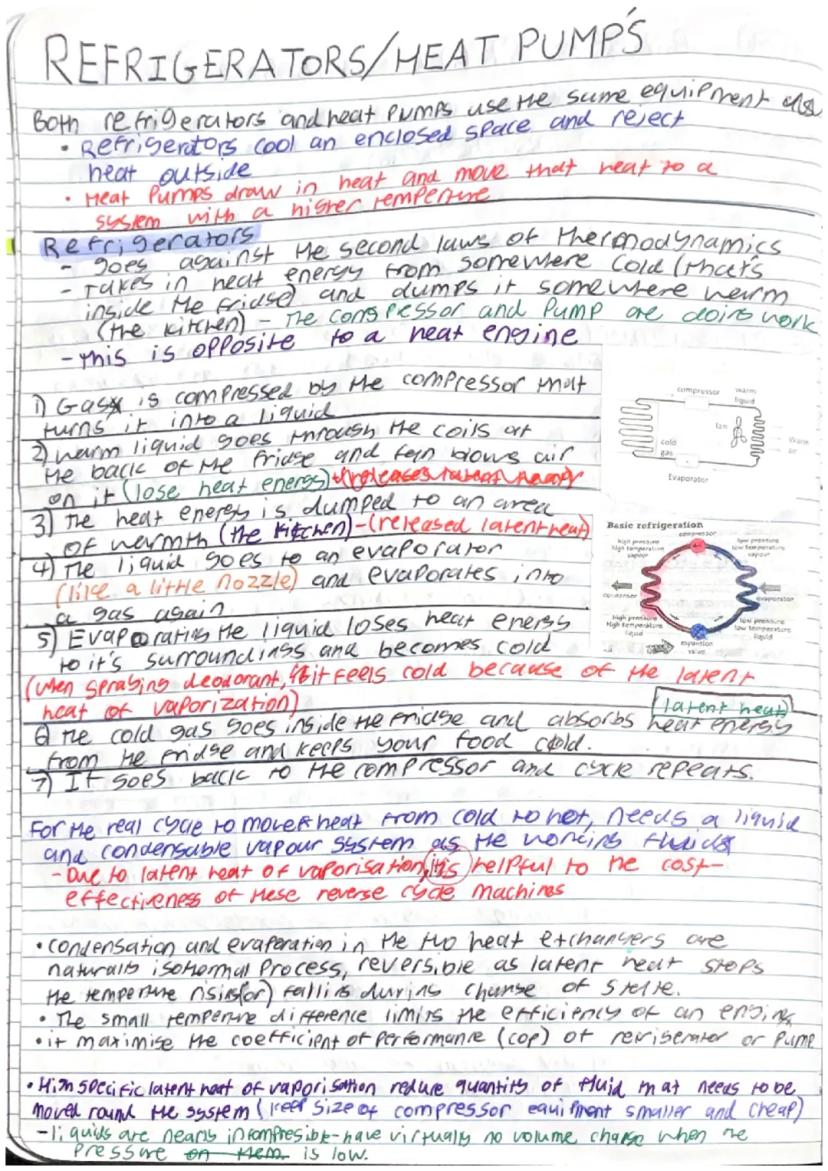 REFRIGERATORS/HEAT PUMP'S
Both refrigerators and heat pumps use the same equipment
• Refrigerators cool an enclosed space and reject
heat outside
• Heat Pumps draw in heat and move that heat to a
system with a higher temperture
Refrigerators
- goes against the second laws of thermodynamics
- takes in heat energy from somewhere cold (that's
inside the fridge) and dumps it somewhere warm
(the kitchen) - The compressor and pump are doing work
- this is opposite to a heat engine
1) Gas is compressed by the compressor that
turns it into a liquid
2) warm liquid goes through the coils at
the back of the fridge and fan blows air
on it (lose heat energy)
3) The heat energy is dumped to an area
of warmth (the kitchen) - (released latent heat)
4) The liquid goes to an evaporator
(like a little nozzle) and evaporates into
a gas again
5) Evaporating the liquid loses heat energy
to it's surroundings and becomes cold
(when spraying deodorant, it feels cold because of the latent
heat of vaporization)
(latent heat)
6) The cold gas goes inside the fridge and absorbs heat energy
from the fridge and keeps your food cold.
7) It goes back to the compressor and cycle repeats.
compressor
warm
liquid
fan
cold
gas
Warm
air
Evaporator
Basic refrigeration
compressor
high pressure
high temperature
vapour
low pressure
low temperature
vapour
condenser
evaporator
high pressure
high temperature
liquid
low pressure
low temperature
liquid
expansion
valve
For the real cycle to move heat from cold to hot, needs a liquid
and condensable vapour system as the working fluids
- Due to latent heat of vaporisation, it's helpful to the cost-
effectiveness of these reverse cycle machines
• condensation and evaporation in the two heat exchangers are
naturally isothermal process, reversible as latent heat stops
the temperture rising (or) falling during change of state.
• The small temperture difference limits the efficiency of an engine
• it maximise the coefficient of performance (cop) of refrigerator or pump
• High specific latent heat of vaporisation reduce quantity of fluid that needs to be
moved round the system (keep size of compressor equipment smaller and cheap)
- liquids are nearly incompresible - have virtually no volume change when the
pressure on them is low.